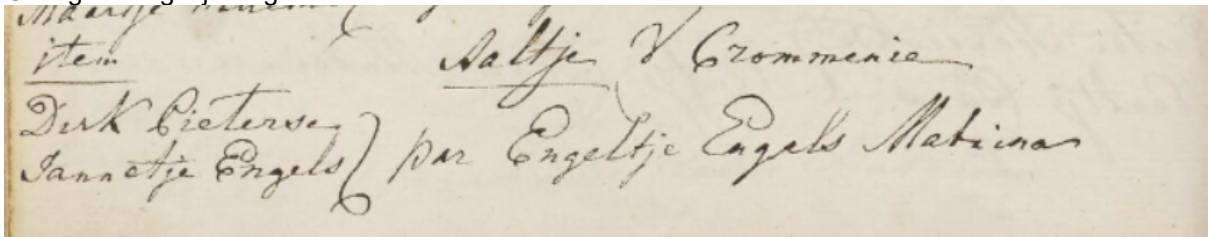 item Aaltje V Crommenie
Dirk Pieterse
Jannetje Engels } par Engeltje Engels Matrina